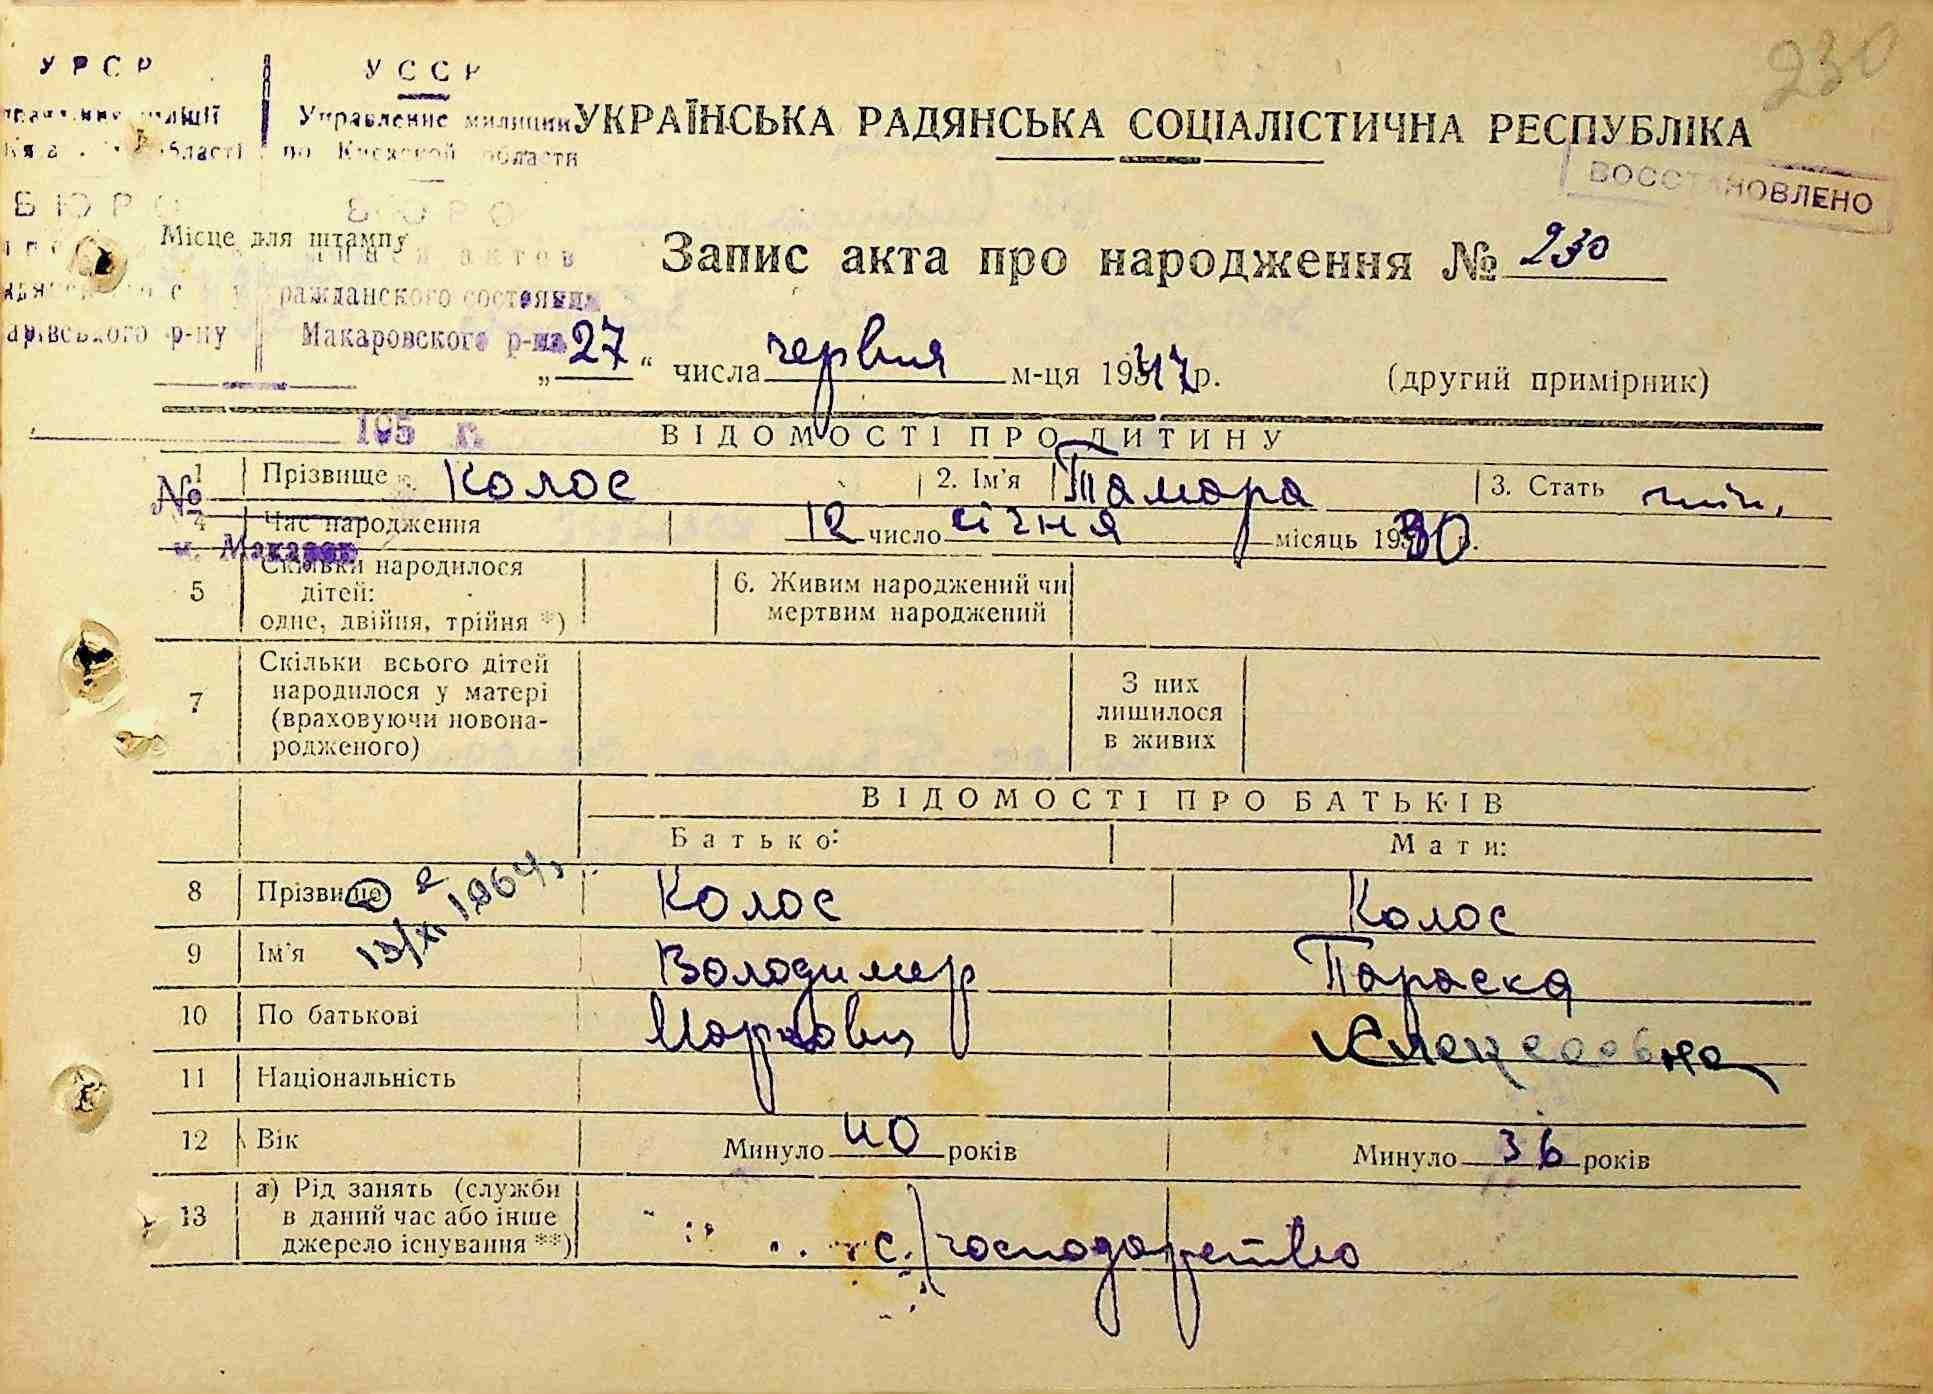 230
УРСР
УССР
Управление милиции
по Киевской области
УКРАЇНСЬКА РАДЯНСЬКА СОЦІАЛІСТИЧНА РЕСПУБЛІКА
ВОССТАНОВЛЕНО
БЮРО
БЮРО
Місце для штампу
актов
Запис акта про народження № 230
гражданского состояния
р-ну
Макаровского р-на
„27“ числа червня м-ця 1947 р.
(другий примірник)
195 г.
ВІДОМОСТІ ПРО ДИТИНУ
1 Прізвище Колос 2. Ім'я Тамара 3. Стать жін.
№
4 Час народження 12 число січня місяць 1930 р.
м. Макаров
5 Скільки народилося
дітей:
одне, двійня, трійня *)
6. Живим народжений чи
мертвим народжений
7 Скільки всього дітей
народилося у матері
(враховуючи новона-
родженого)
З них
лишилося
в живих
ВІДОМОСТІ ПРО БАТЬКІВ
Батько: Мати:
8 Прізвище Колос Колос
13/XI 1964
9 Ім'я Володимир Параска
10 По батькові Маркович
11 Національність
12 Вік Минуло 40 років Минуло 36 років
13 а) Рід занять (служби
в даний час або інше
джерело існування **)
с/господарство